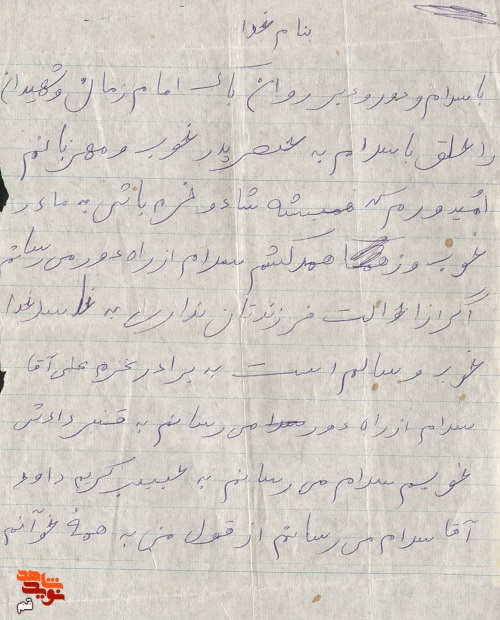 بنام خدا
با سلام و درود بر روان پاک امام زمان و شهیدان
با سلام به پدر خوب و مهربانم
امیدورم که همیشه شاد و خرم باشی به مادر
خوب و سلام از راه دور می رسانم
اگر از احوالت فرزندتان به خدا
خوب و سالم است به برادر علی آقا
سلام از راه دور می رسانم به داداش
خوبم سلام می رسانم به حبیب کریم داود
آقا سلام می رسانم از قول من به همهٔ
شاهد
نوید
قم